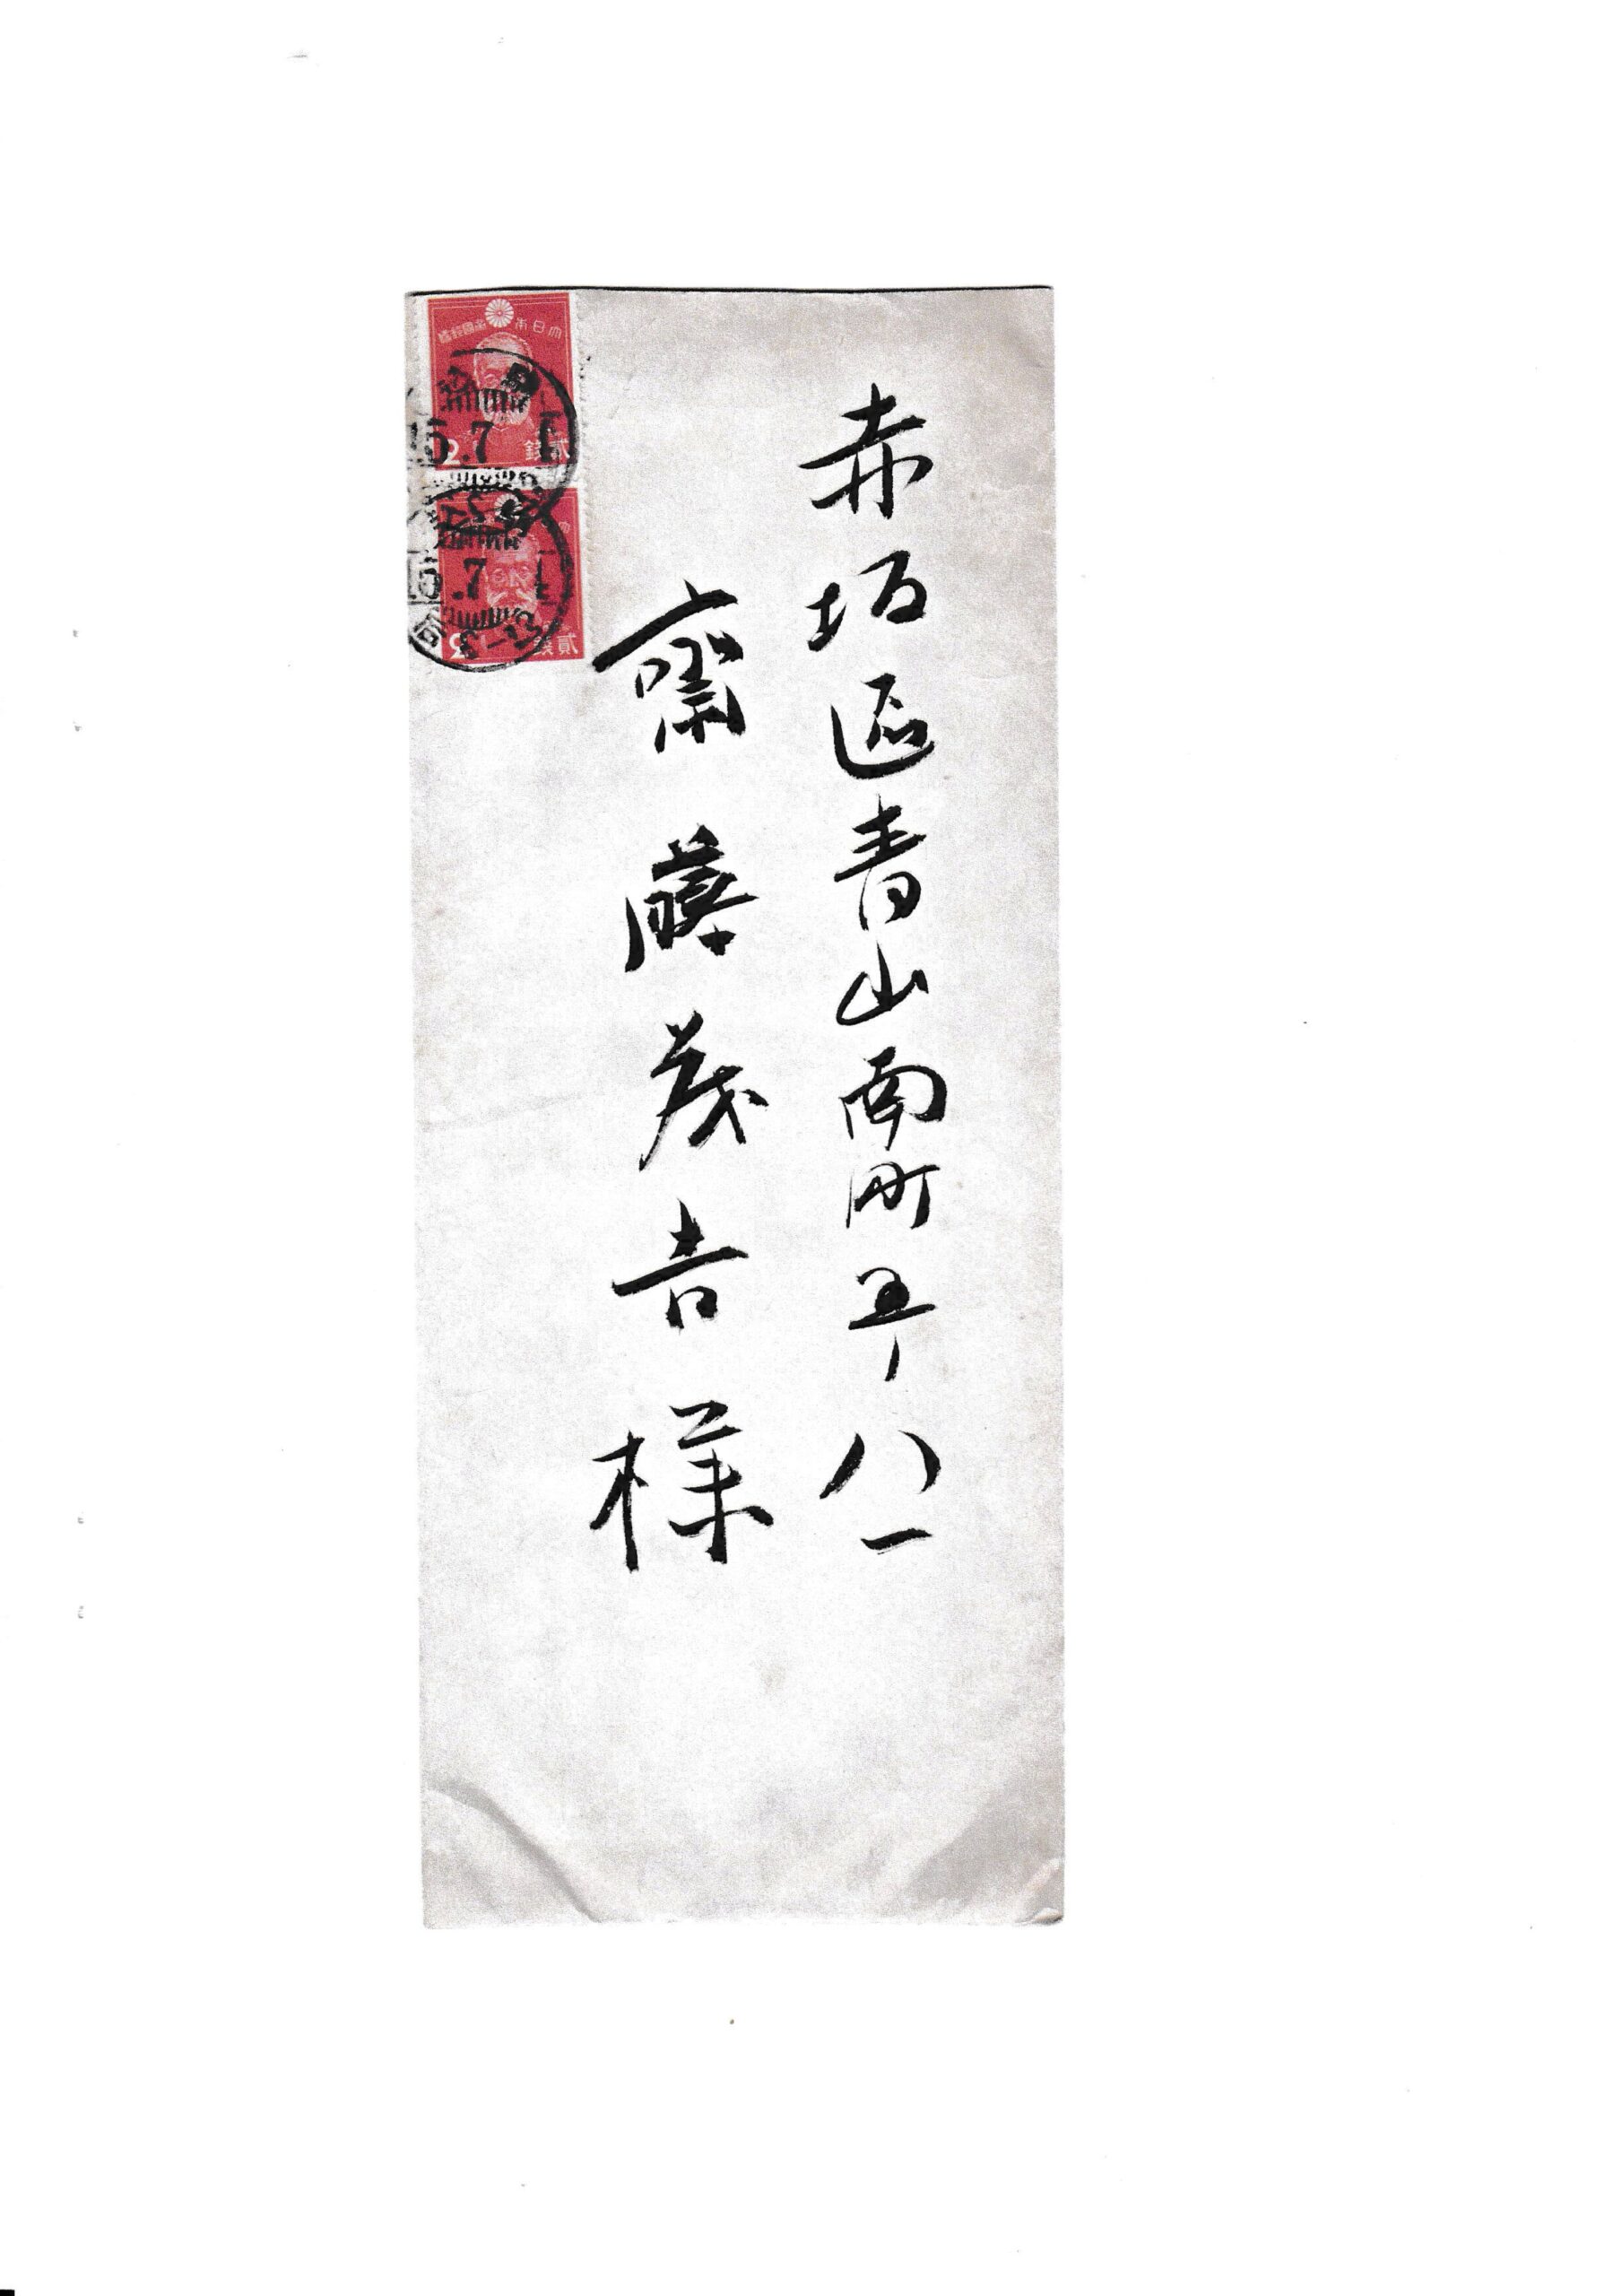 赤坂區青山南町五ノ八一
齋藤茂吉様
大日本帝國郵便
貳錢
2
15.7
貳錢
2
15.7